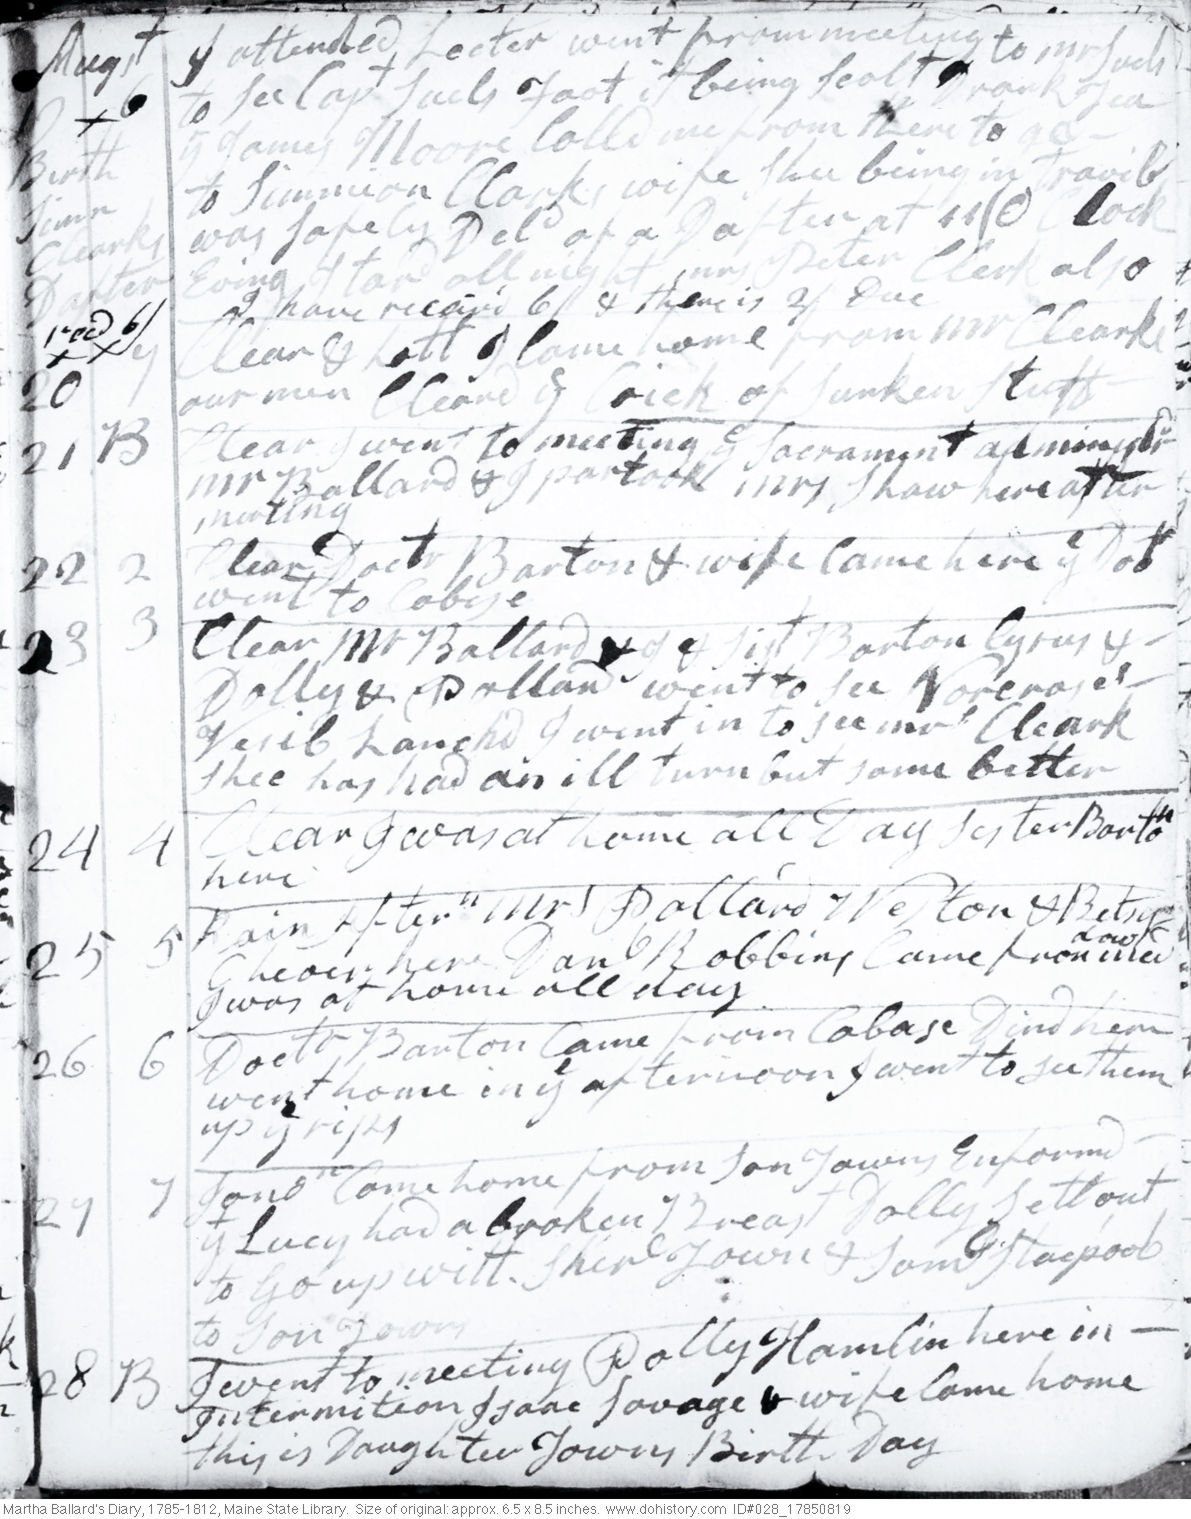 Augst
x 6
Birth
Simn
Clearks
Daxter
I attended Lecter went from meeting to mr Suels
to see Capt Suels Foot it being scolt Drank Tea
James Moore Calld me from there to go -
to Simmion Clarks wife Shee being in Travil
was safely Deld of a Dafter at 11 O Clock
Evng I tard all night mrs Peter Clerk also
I have receivd 6/ & there is 2/ Due
recd 6/
x x
20 7 Clear & hott I Came home from mr Clearks
our men Cleard ye Crick of sunken stuff -
21 B Clear I went to meeting ye Sacrament adminstr
mr Ballard & I partook mrs Shaw here after
meeting
22 2 Clear Doctr Barton & wife Came here ye Dotr
went to Cobese
23 3 Clear Mr Ballard & I & Sist Barton Cyrus & -
Dolly & Pollard went to see Norcroses -
Vesil Lanchd I went in to see mrs Cleark
shee has had an ill turn but some better
24 4 Clear I was at home all Day Sester Barton
here
25 5 Rain Aftern Mrs Pollard Weston & Betsy
Chever here Dan Robbins Came from
I was at home all day
26 6 Doctr Barton Came from Cobase Dind here
went home in ye afternoon I went to see them
up ye rips
27 7 Jonan Came home from son Towns Enformd -
yt Lucy had a broken Breast Dolly Sett out
to go up with Town & Saml Stacpool
to son Towns
28 B I went to meeting Polly Hamlin here in -
Intermition Isaac Savage & wife Came home
this is Daughter Towns Birth Day
Martha Ballard's Diary, 1785-1812, Maine State Library. Size of original: approx. 6.5 x 8.5 inches. www.dohistory.com ID#028_17850819